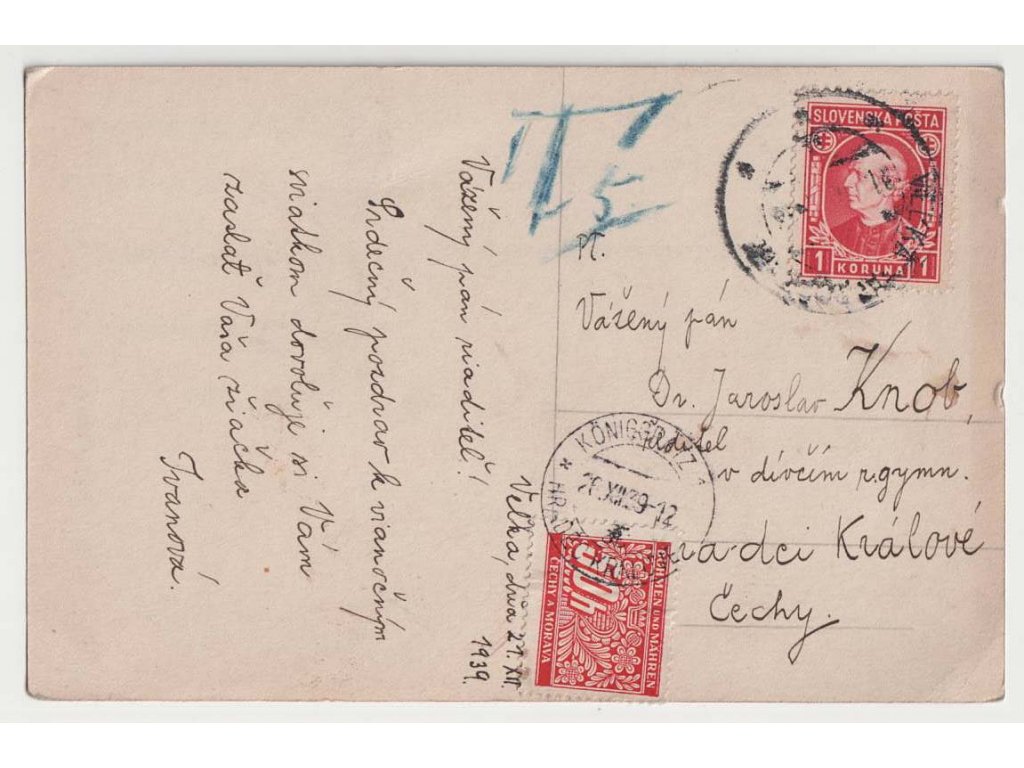 Velká, dňa 21. XII.
1939.
Vážený pán riaditeľ!
Srdečný pozdrav k vianočným
sviatkom dovoľuje si Vám
zaslať Vaša žiačka
Ivanová.
T
5
SLOVENSKÁ POŠTA
1 KORUNA 1
Pt.
Vážený pán
Dr. Jaroslav Knob,
riditel
v dívčím r. gymn.
Hradci Králové
Čechy.
KÖNIGGRÄTZ
26.XII.39-12
HRADEC KRÁL
50h
BÖHMEN UND MÄHREN
ČECHY A MORAVA